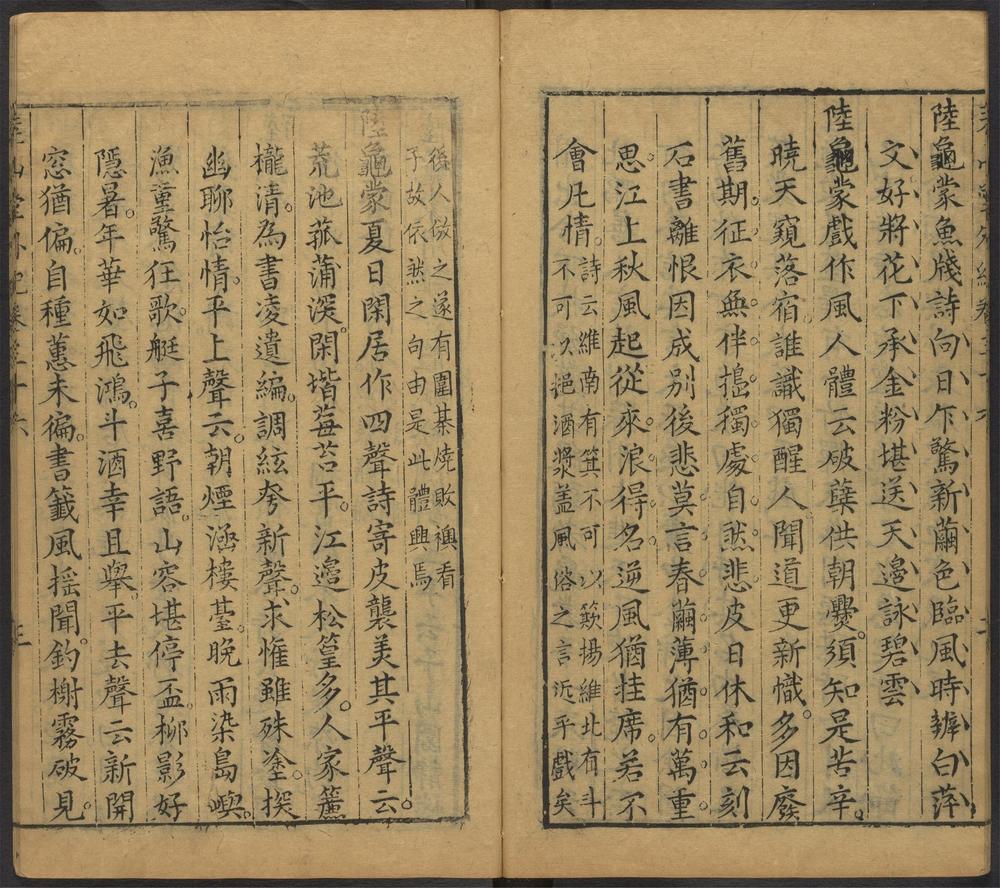 陸龜蒙魚牋詩向日乍驚新繭色臨風時辨白萍
文好將花下承金粉堪送天邊詠碧雲
陸龜蒙戲作風人體云破蘗供朝爨須知是苦辛
曉天窺落宿誰識獨醒人聞道更新幟多因廢
舊期征衣無伴搗獨處自然悲皮日休和云刻
石書離恨因成別後悲莫言春繭薄猶有萬重
思江上秋風起從來浪得名逆風猶挂席若不
會凡情
詩云維南有箕不可以簸揚維北有斗
不可以挹酒漿盖風俗之言近乎戲矣
後人倣之遂有圍棊燒敗襖看
子故依然之句由是此體興焉
陸龜蒙夏日閑居作四聲詩寄皮襲美其平聲云
荒池菰蒲深閑堦莓苔平江邉松篁多人家簾
櫳清為書凌遺編調絃夸新聲求懽雖殊塗探
幽聊怡情平上聲云朝煙涵樓臺晚雨染島嶼
漁童驚狂歌艇子喜野語山容堪停盃柳影好
隱暑年華如飛鴻斗酒幸且舉平去聲云新開
窓猶偏自種蕙未徧書籤風摇聞釣榭霧破見